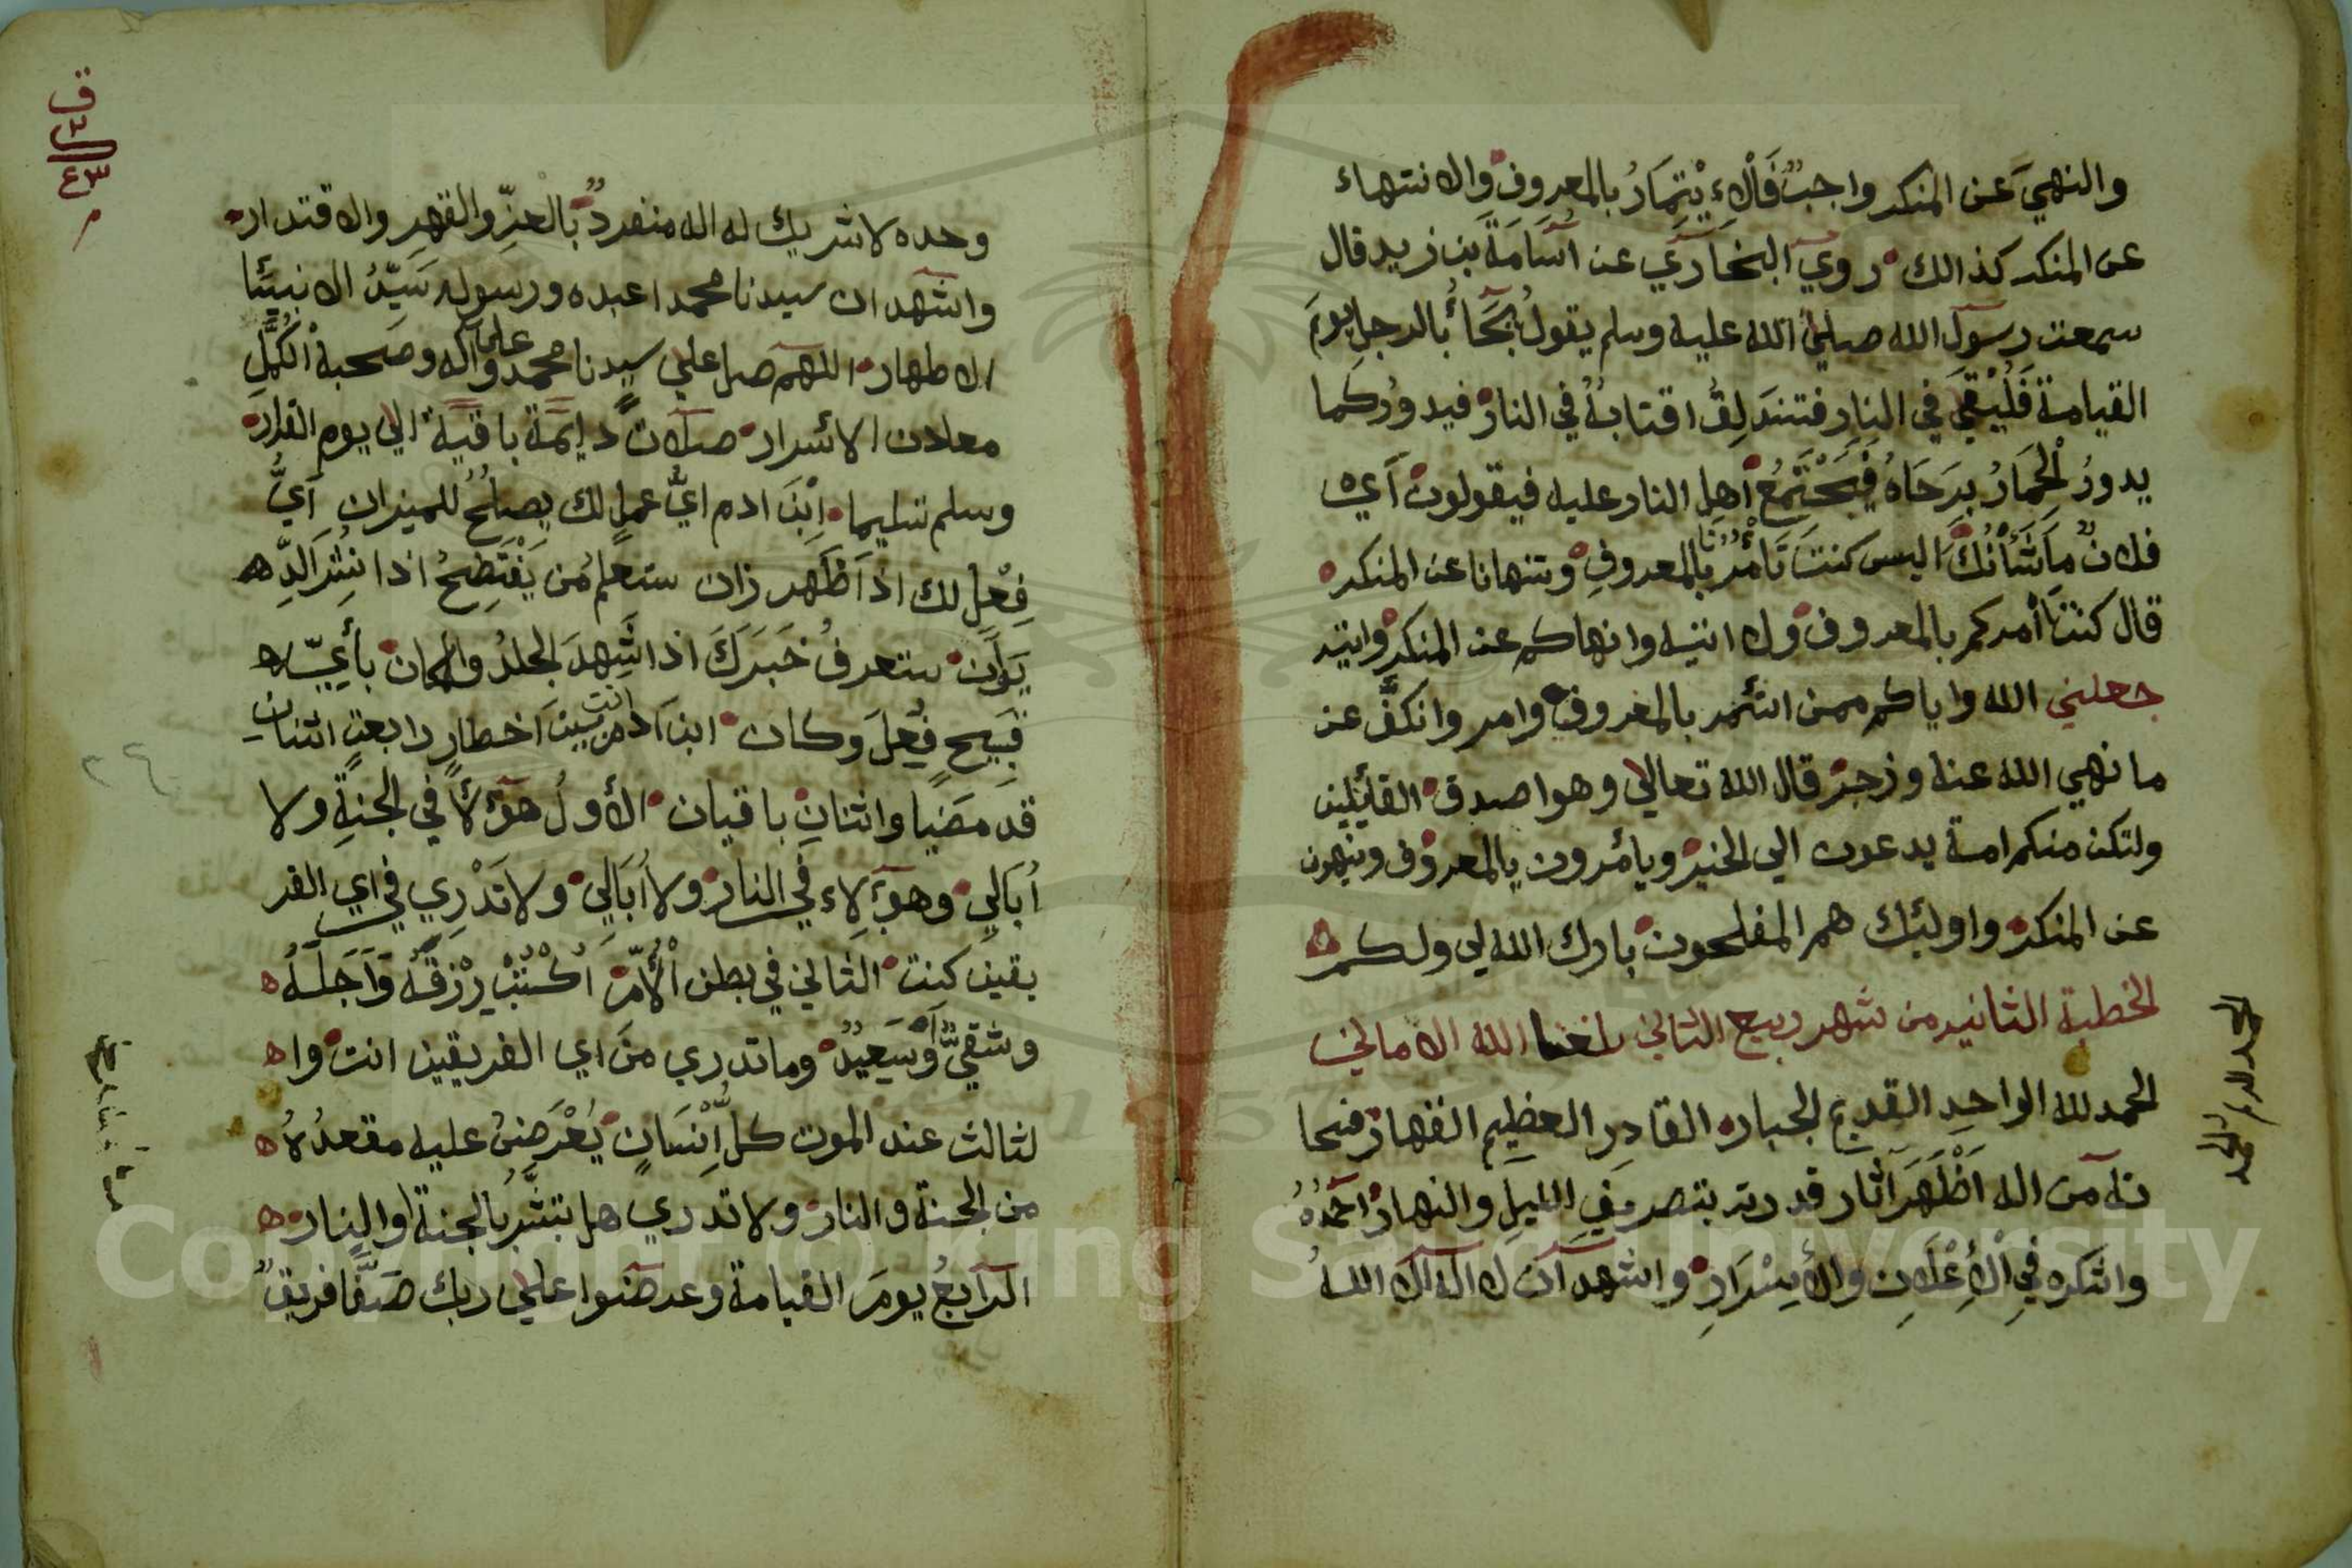 والنهي عن المنكر واجب فالاءيتمار بالمعروف والانتهاء
عن المنكر كذالك روي البخاري عن اسامة بن زيد قال
سمعت رسول الله صلي الله عليه وسلم يقول يجاء بالرجل يوم
القيامة فليقي في النار فتندلق اقتابه في النار فيدور كما
يدور الحمار برحاه فيجتمع اهل النار عليه فيقولون اي
فلان ما شأنك اليس كنت تأمرنا بالمعروف وتنهانا عن المنكر
قال كنت أمركم بالمعروف ولا اتيه وانهاكم عن المنكر واتيه
جعلني الله واياكم ممن ائتمر بالمعروف وامر وانكف عن
ما نهي الله عنه وزجر قال الله تعالي وهوا صدق القائلين
ولتكن منكم امة يدعون الي الخير ويأمرون بالمعروف وينهون
عن المنكر واولئك هم المفلحون بارك الله لي ولكم
الخطبة الثانيه من شهر ربيع الثاني بلغنا الله الاماني
الحمد لله الواحد القديم الجبار القادر العظيم القهار فسبحا
نه من اله اظهر آثار قدرته بتصريف الليل والنهار احمده
واشكره في الاعلان والأيسرار واشهد ان لا اله الا الله
وحده لا شريك له اله منفرد بالعز والقهر والاقتدار
واشهد ان سيدنا محمدا عبده ورسوله سيد الانبيئا
الاطهار اللهم صل علي سيدنا محمد وعلي آله وصحبه الكمل
معادن الاسرار صلات دايمة باقية الي يوم القرار
وسلم تسليما ابن ادم اي عمل لك يصلح للميزان اي
فعل لك اذا ظهر زان ستعلم من يفتضح اذا نشر الد
يوان ستعرف خبرك اذا شهد الجلد والمكان بأي
قبيح فعل وكان ابن ادم انت بين اخطار رابعة اثنان
قد مضيا واثنان باقيان الأول هؤلاء في الجنة ولا
أبالي وهؤلاء في النار ولا أبالي ولا تدري في اي الفر
يقين كنت الثاني في بطن الأم اكتب رزقه واجله
وشقي أو سعيد وما تدري من اي الفريقين انت وا
لثالث عند الموت كل إنسان يعرض عليه مقعده
من الجنة والنار ولا تدري هل تبشر بالجنة اوالنار
الرابع يوم القيامة وعرضوا علي ربك صفا فريق